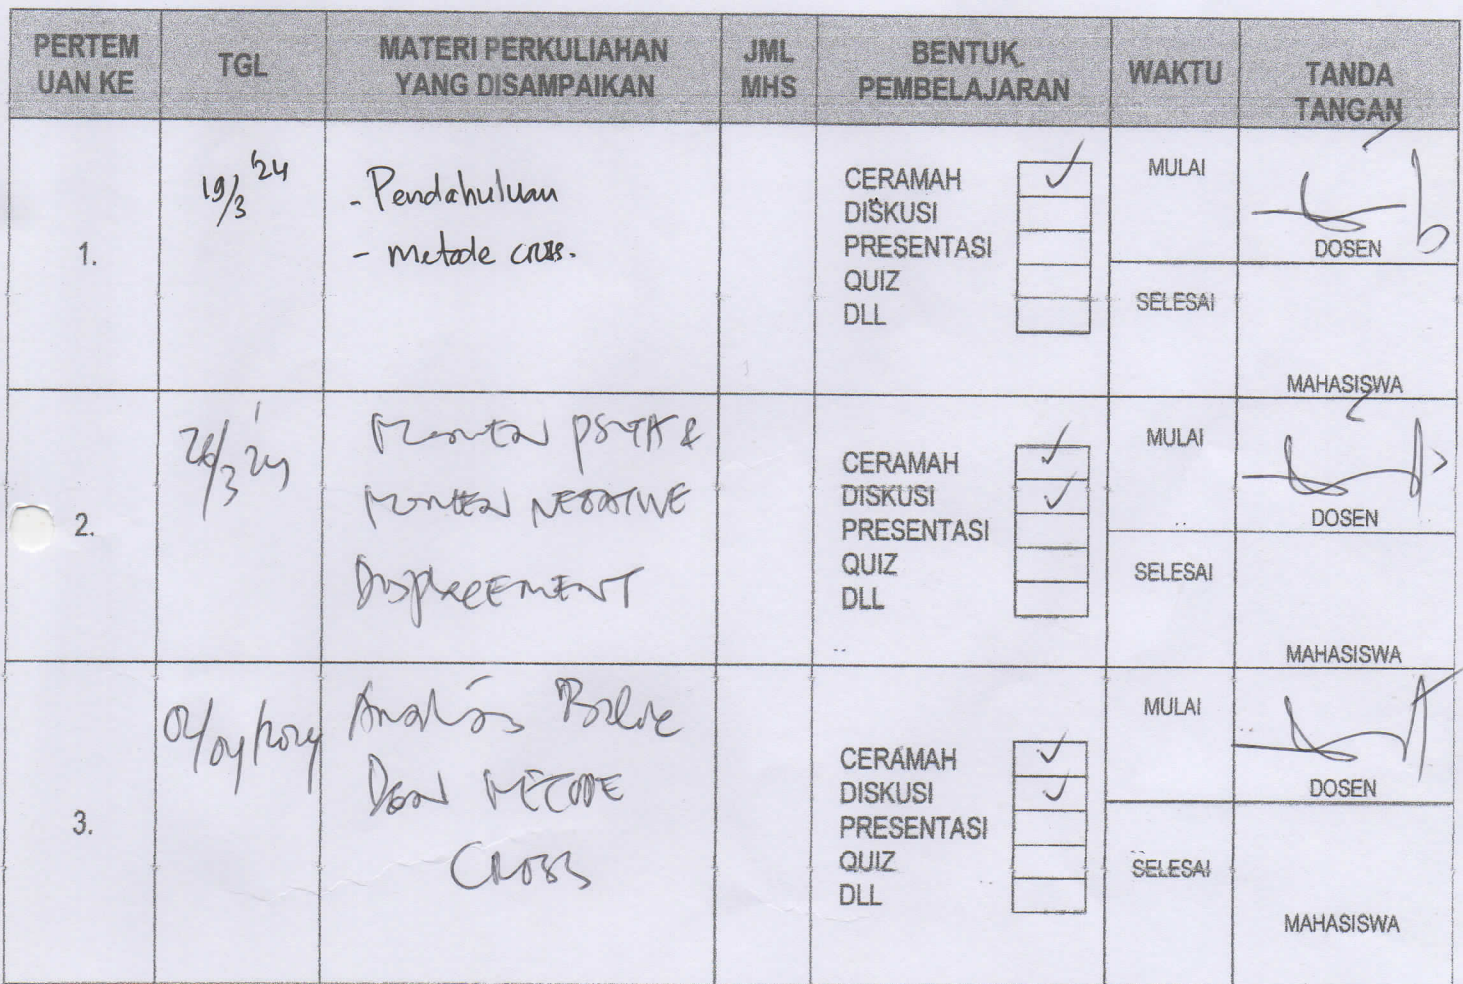 PERTEM UAN KE
TGL
MATERI PERKULIAHAN
YANG DISAMPAIKAN
JML
MHS
BENTUK
PEMBELAJARAN
WAKTU
TANDA
TANGAN
1.
19/3 '24
- Pendahuluan
- metode cross.
CERAMAH
DISKUSI
PRESENTASI
QUIZ
DLL
MULAI
SELESAI
DOSEN
MAHASISWA
2.
26/3 '24
MOMEN &
MOMEN NEGATIVE
CERAMAH
DISKUSI
PRESENTASI
QUIZ
DLL
MULAI
SELESAI
DOSEN
MAHASISWA
3.
02/04/2024
Analisis
METODE
CROSS
CERAMAH
DISKUSI
PRESENTASI
QUIZ
DLL
MULAI
SELESAI
DOSEN
MAHASISWA